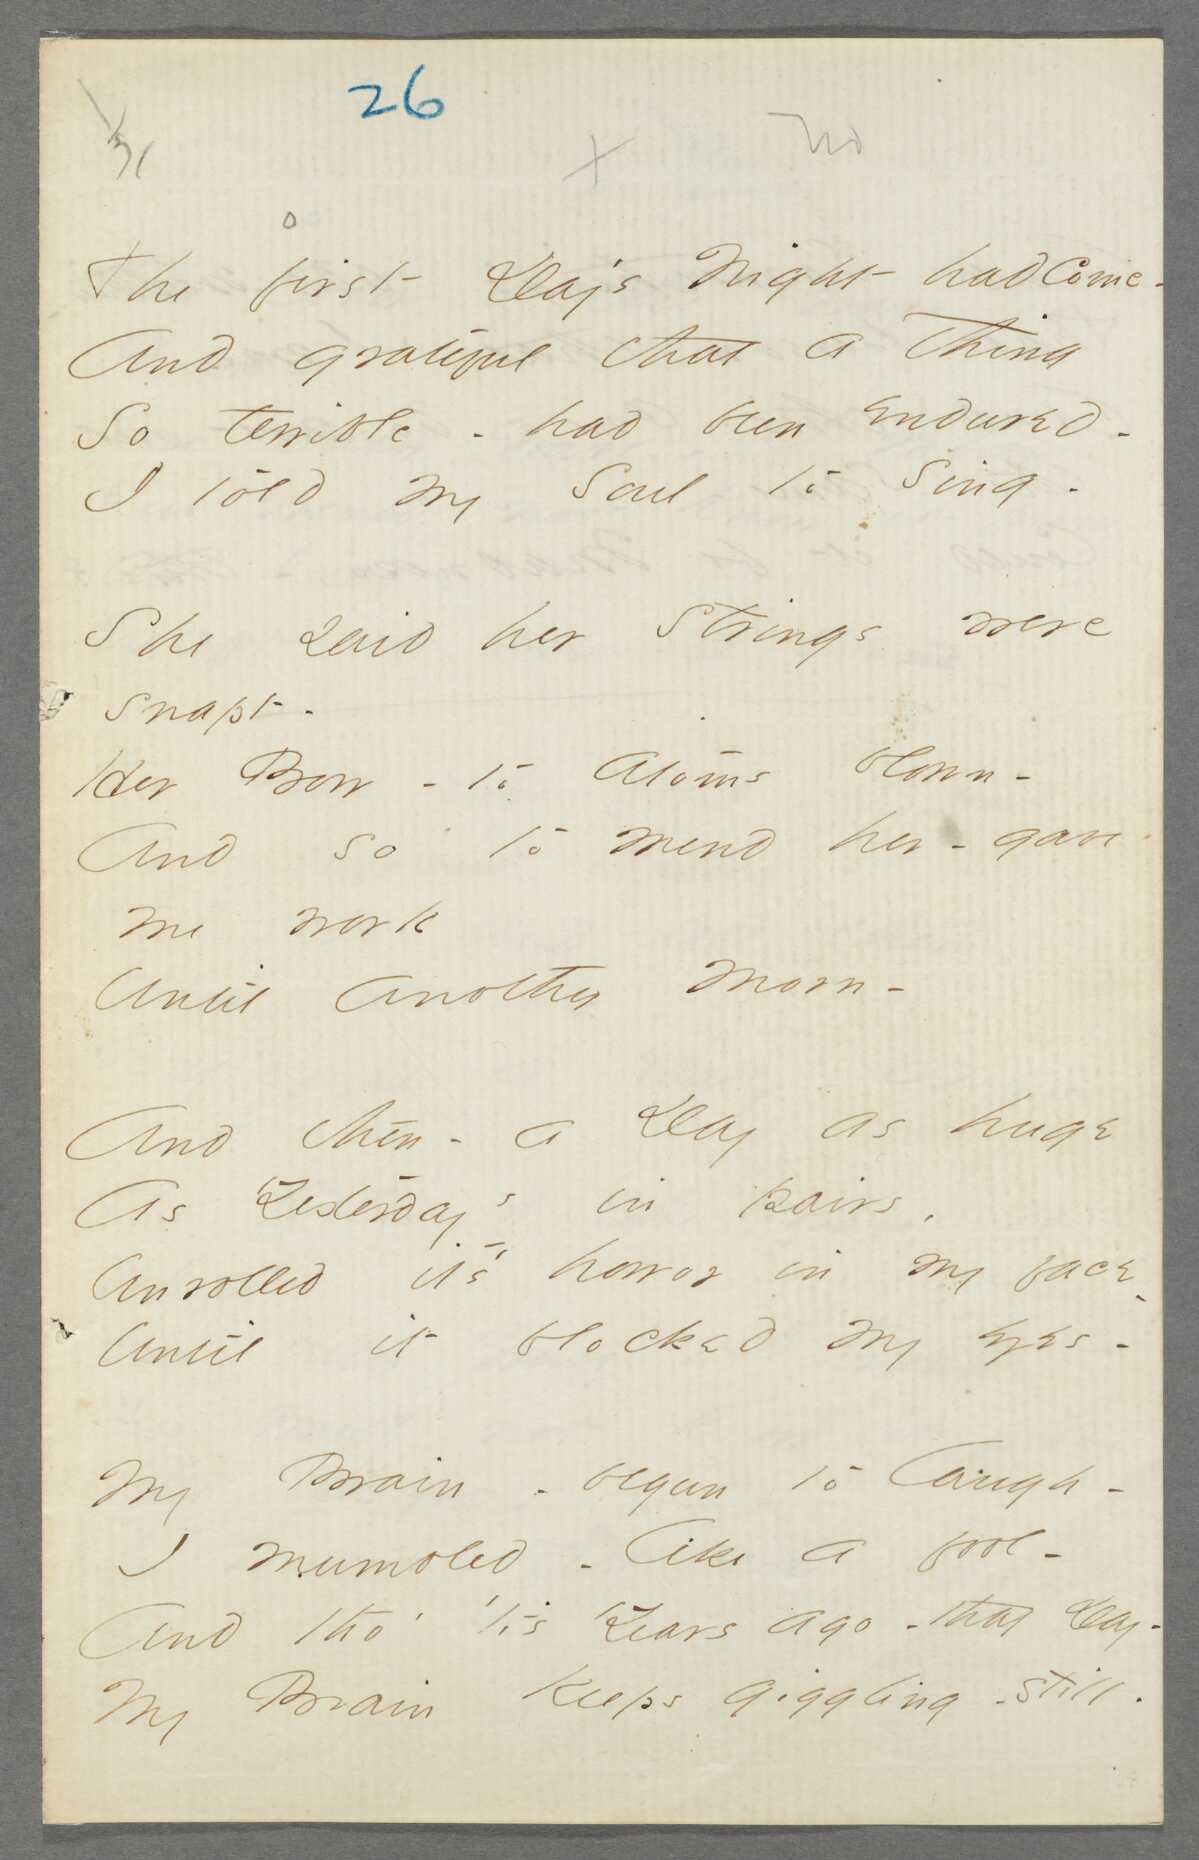 26
No
x
The first Day's Night had come -
And grateful that a thing
So terrible - had been endured -
I told my Soul to sing -
She said her Strings were
snapt -
Her Bow - to Atoms blown -
And so to mend her - gave
me work
Until another Morn -
And then - a Day as huge
As Yesterdays in pairs,
Unrolled it's horror in my face -
Until it blocked my eyes -
My Brain - begun to laugh -
I mumbled - like a fool -
And tho' 'tis Years ago - that Day -
My Brain keeps giggling - still.